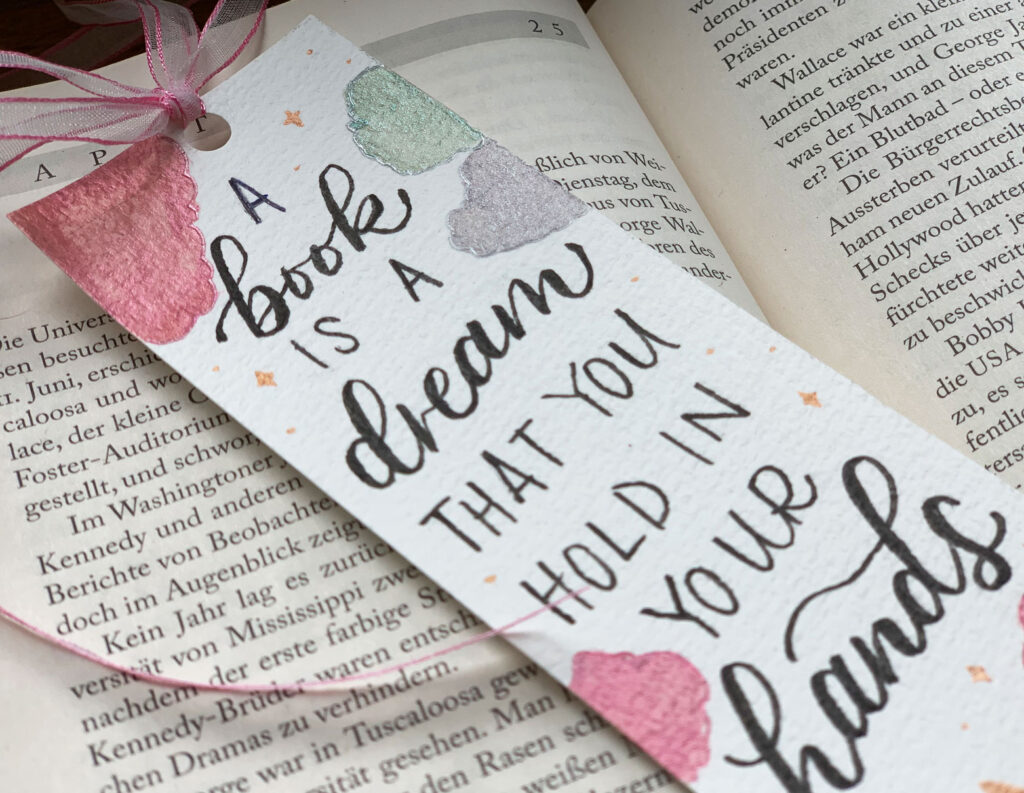 A
book
IS A
dream
THAT YOU
HOLD IN
YOUR
hands
25
A P
ßlich von Wei-
ienstag, dem
us von Tus-
orge Wal-
ren des
nder-
Die Univers
sen besuchte
tr. Juni, erschi
caloosa und wo
lace, der kleine
Foster-Auditorium
gestellt, und schwor,
Im Washingtoner
Kennedy und anderen
Berichte von Beobachte
doch im Augenblick zeig
Kein Jahr lag es zurück
versität von Mississippi zwe
nachdem der erste farbige St
Kennedy-Brüder waren entsch
chen Dramas zu verhindern.
orge war in Tuscaloosa gew
sität gesehen. Man
den Rasen sch
weißen
demo
noch imm
Präsidenten z
waren.
Wallace war ein klein
lantine tränkte und zu einer
verschlagen, und George Ja
was der Mann an diesem T
er? Ein Blutbad – oder e
Die Bürgerrechtsbe
Aussterben verurteilt
ham neuen Zulauf.
Hollywood hatten
Schecks über je
fürchtete weit
zu beschwich
Bobby
die USA
zu, es s
fentlic